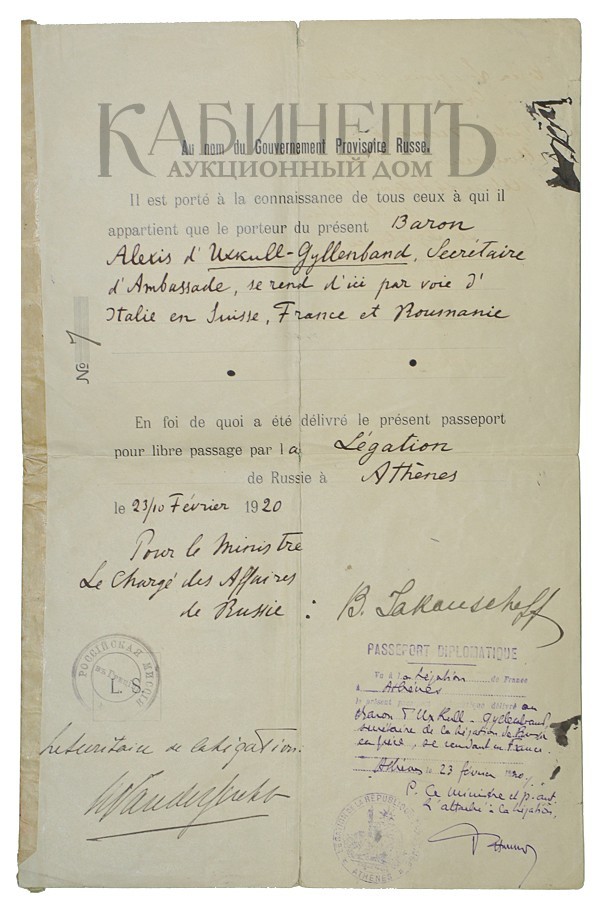 КАБИНЕТЪ
АУКЦИОННЫЙ ДОМ
Au nom du Gouvernement Provisoire Russe.
Il est porté à la connaissance de tous ceux à qui il
appartient que le porteur du présent Baron
Alexis d'Uxkull-Gyllenband, Secrétaire
d'Ambassade, se rend d'ici par voie d'
Italie en Suisse, France et Roumanie
№ 7
En foi de quoi a été délivré le présent passeport
pour libre passage par la Légation
de Russie à Athènes
le 23/10 Février 1920
Pour le Ministre
Le Chargé des Affaires
de Russie :
РОССIЙСКАЯ МИССIЯ
L. S.
PASSEPORT DIPLOMATIQUE
Vu à la Légation de France
à Athènes
le présent délivré au
Baron d'Uxkull-Gyllenband
secrétaire de la Légation de Russie
en Grèce, se rendant en France.
Athènes le 23 février 1920
P. le ministre et p. aut.
L'attaché à la Légation,
ATHÈNES